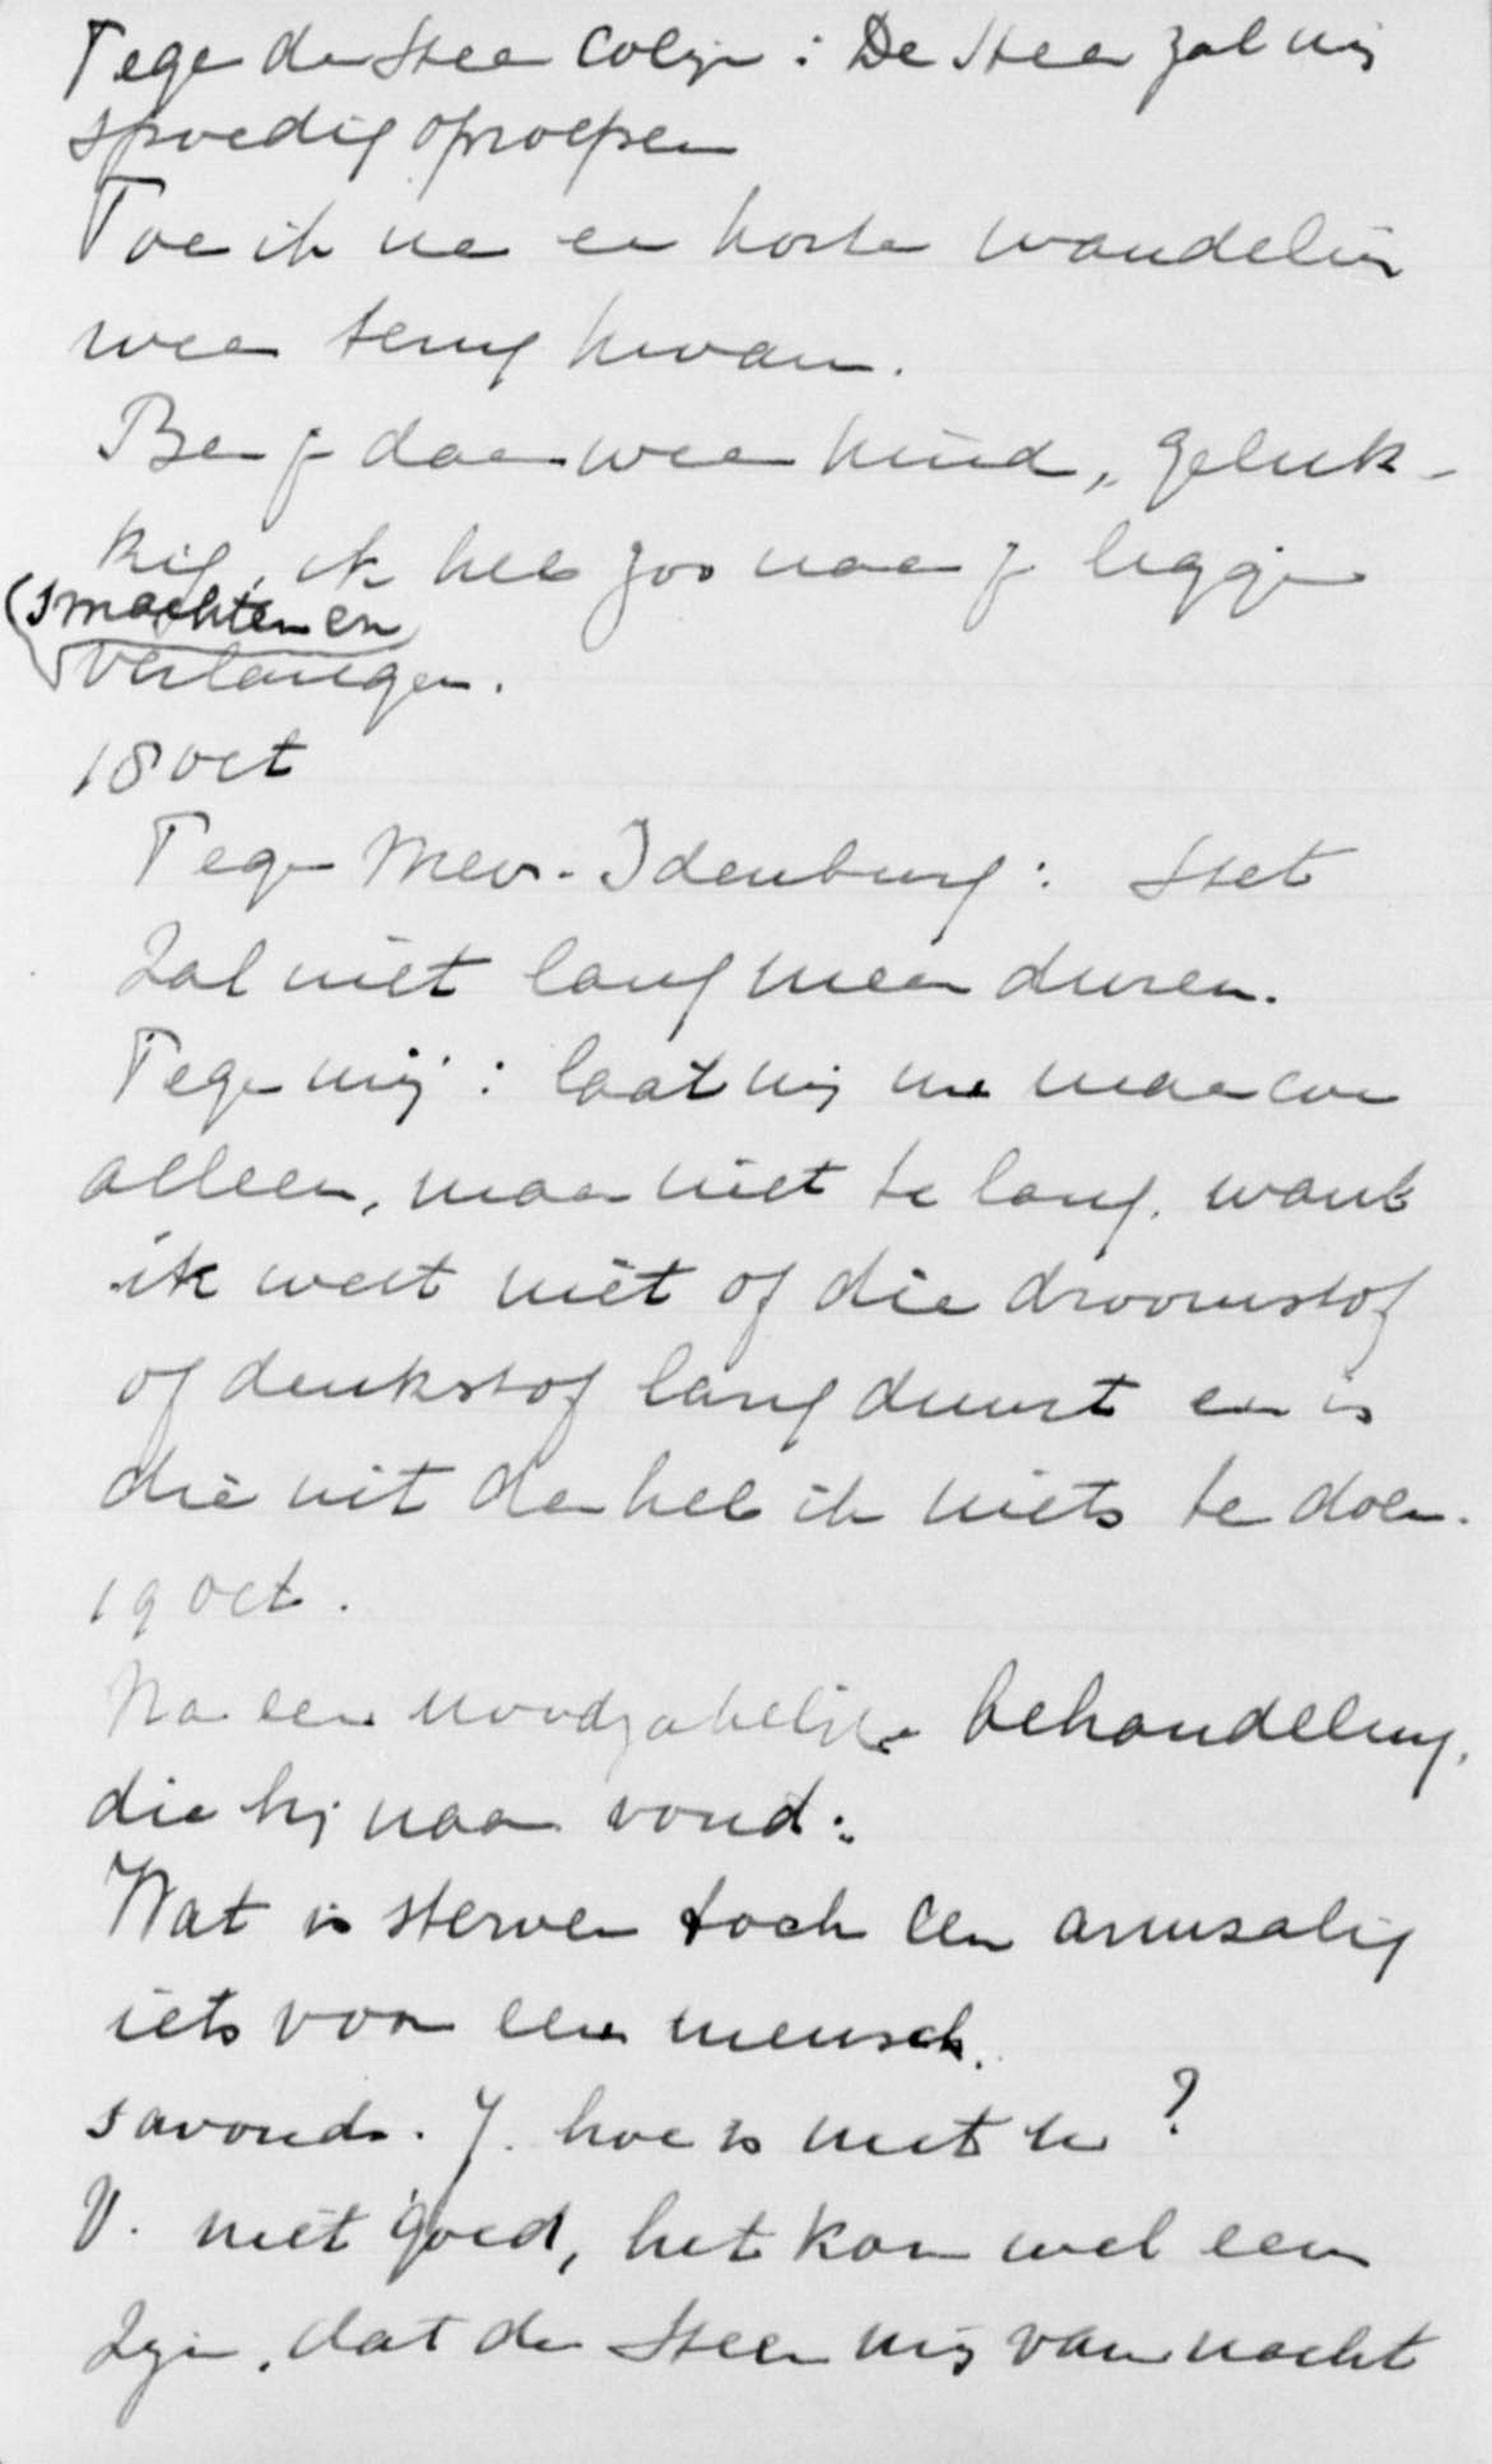 Tegen den Heer Colijn : De Heer zal mij
spoedig oproepen
Toen ik na een korte wandeling
weer terug kwam.
Ben je daar weer kind, geluk-
kig, ik heb zoo naar je liggen
(smachten en
verlangen.
18 oct
Tegen Mevr. Idenburg : Het
zal niet lang meer duren.
Tegen mij : laat mij nu maar
alleen, maar niet te lang. want
ik weet niet of die droomstof
of denkstof lang duurt en is
die uit dan heb ik niets te doen.
19 oct.
Na een noodzakelijke behandeling,
die hij naar vond :
Wat is sterven toch een armzalig
iets voor een mensch.
s avonds. J. hoe is het met u ?
V. niet goed, het kon wel een
zijn, dat de Heer mij van nacht